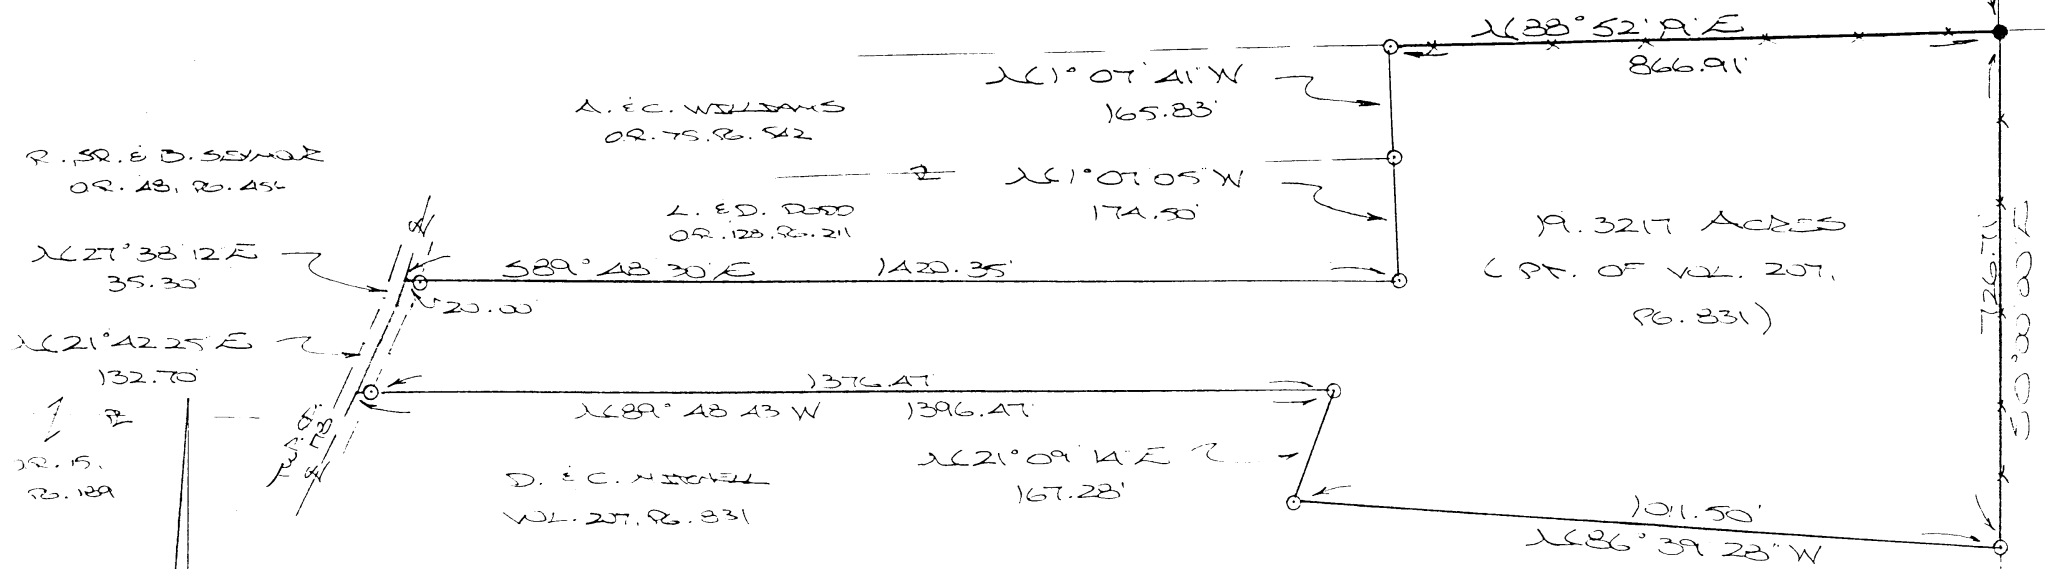 N 88° 52' 19" E
866.91'
N 1° 07' 41" W
165.83'
A. & C. WILLIAMS
O.R. 75, PG. 542
R. SR. & B. SEYMOUR
O.R. 48, PG. 456
N 1° 07' 05" W
174.50'
L. & D. DODD
O.R. 128, PG. 211
19.3217 ACRES
( PT. OF VOL. 207,
PG. 831 )
N 27° 38' 12" E
35.30'
S 89° 48' 30" E 1420.35'
20.00'
726.71'
S 0° 00' 00" E
N 21° 42' 25" E
132.70'
1376.47'
N 89° 48' 43" W 1396.47'
N 21° 09' 14" E
167.28'
O.R. 15,
PG. 189
D. & C. MITCHELL
VOL. 207, PG. 831
1011.50'
N 86° 39' 28" W